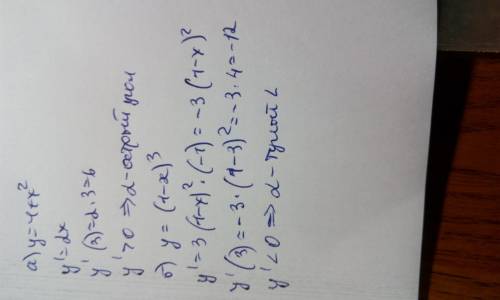 а) y=4+x²
y'=2x
y'(3)=2·3=6
y'>0 ⇒ α-острый угол
б) y=(1-x)³
y'=3(1-x)²·(-1)=-3(1-x)²
y'(3)=-3·(1-3)²=-3·4=-12
y'<0 ⇒ α-тупой ∠